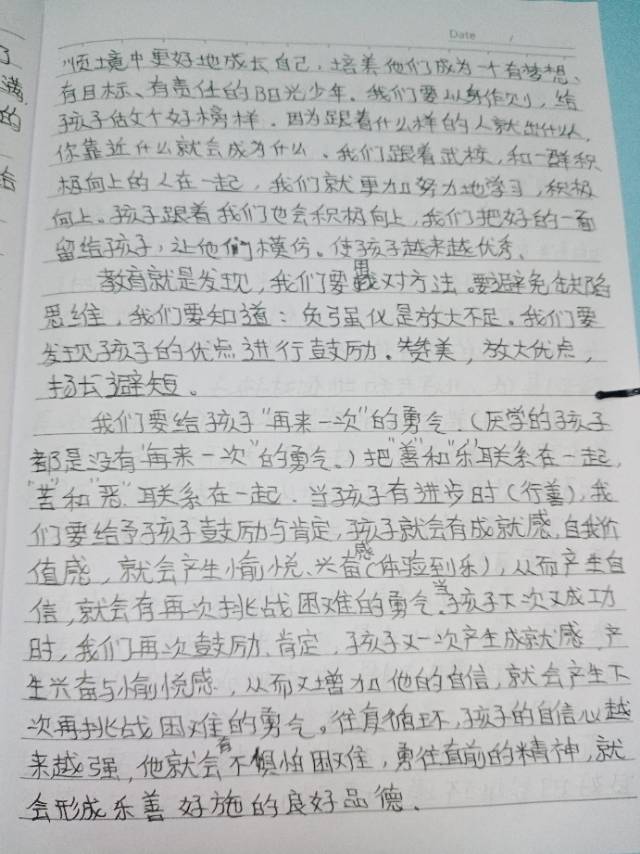 Date /
顺境中更好地成长自己，培养他们成为一个有梦想、
有目标、有责任的阳光少年。我们要以身作则，给
孩子做个好榜样。因为跟着什么样的人就出什么人，
你靠近什么就会成为什么。我们跟着武校，和一群积
极向上的人在一起，我们就更加努力地学习，积极
向上。孩子跟着我们也会积极向上，我们把好的一面
留给孩子，让他们模仿。使孩子越来越优秀。
教育就是发现，我们要用对方法。要避免缺陷
思维，我们要知道：负强化是放大不足。我们要
发现孩子的优点进行鼓励。赞美，放大优点，
扬长避短。
我们要给孩子"再来一次"的勇气。（厌学的孩子
都是没有"再来一次"的勇气。）把"善"和"乐"联系在一起，
"苦"和"恶"联系在一起。当孩子有进步时（行善），我
们要给予孩子鼓励与肯定，孩子就会有成就感，自我价
值感，就会产生愉悦、兴奋感（体验到乐），从而产生自
信，就会有再次挑战困难的勇气。当孩子下次又成功
时，我们再次鼓励、肯定，孩子又一次产生成就感，产
生兴奋与愉悦感，从而又增加他的自信，就会产生下
次再挑战困难的勇气。往复循环，孩子的自信心越
来越强，他就会有不惧怕困难，勇往直前的精神，就
会形成乐善好施的良好品德。
了
满
的
给